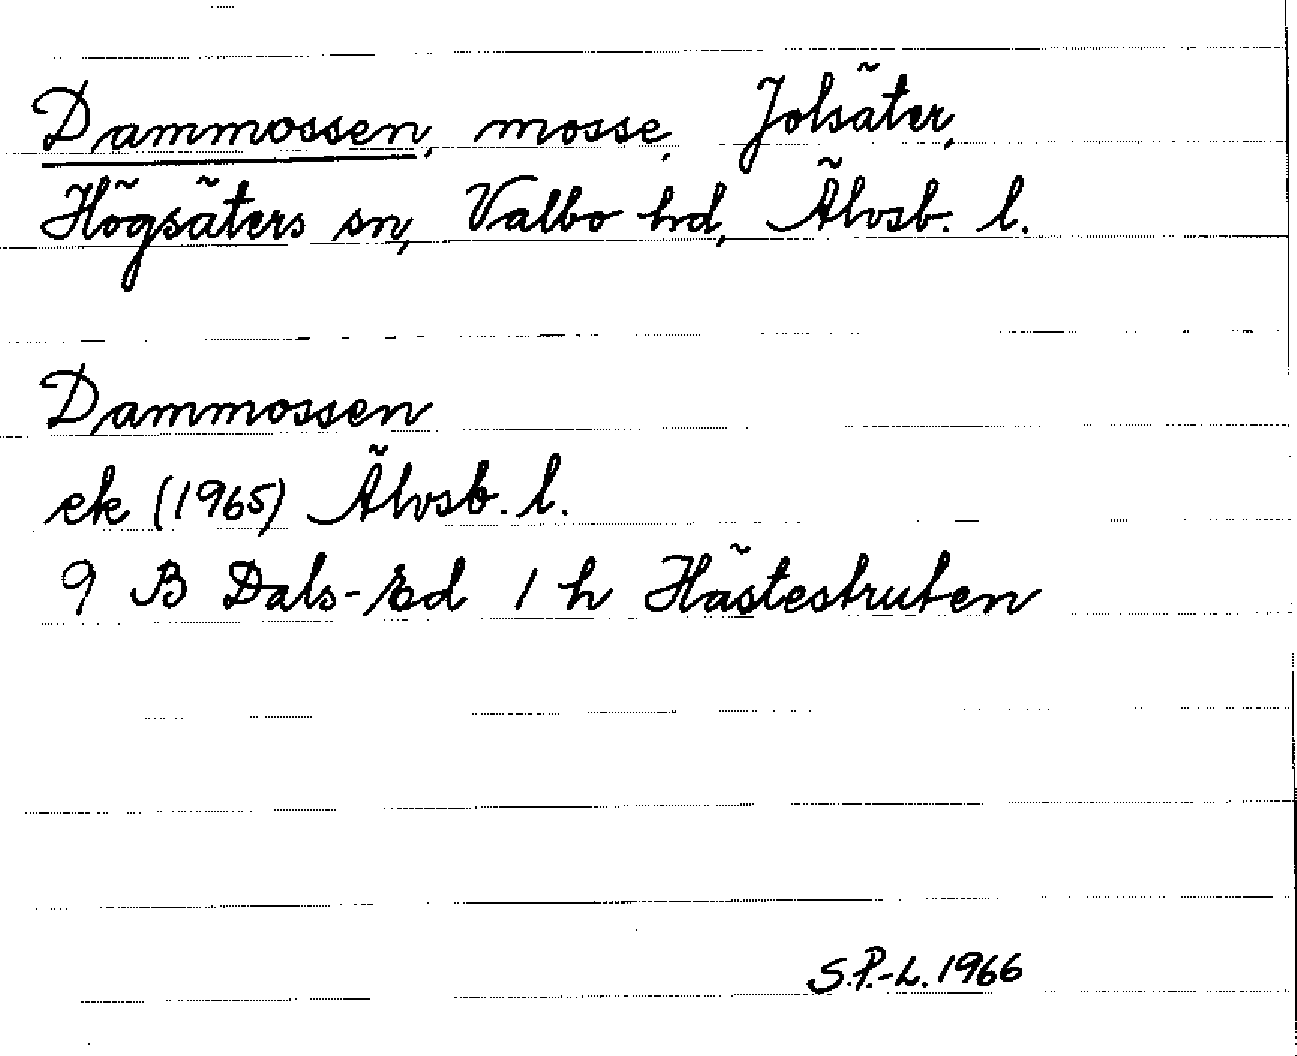 Dammossen, mosse, Jolsäter,
Högsäters sn, Valbo hd, Älvsb. l.
Dammossen
ek (1965) Älvsb. l.
9 B Dals-Ed 1 h Hästestruten
S.P.-L. 1966